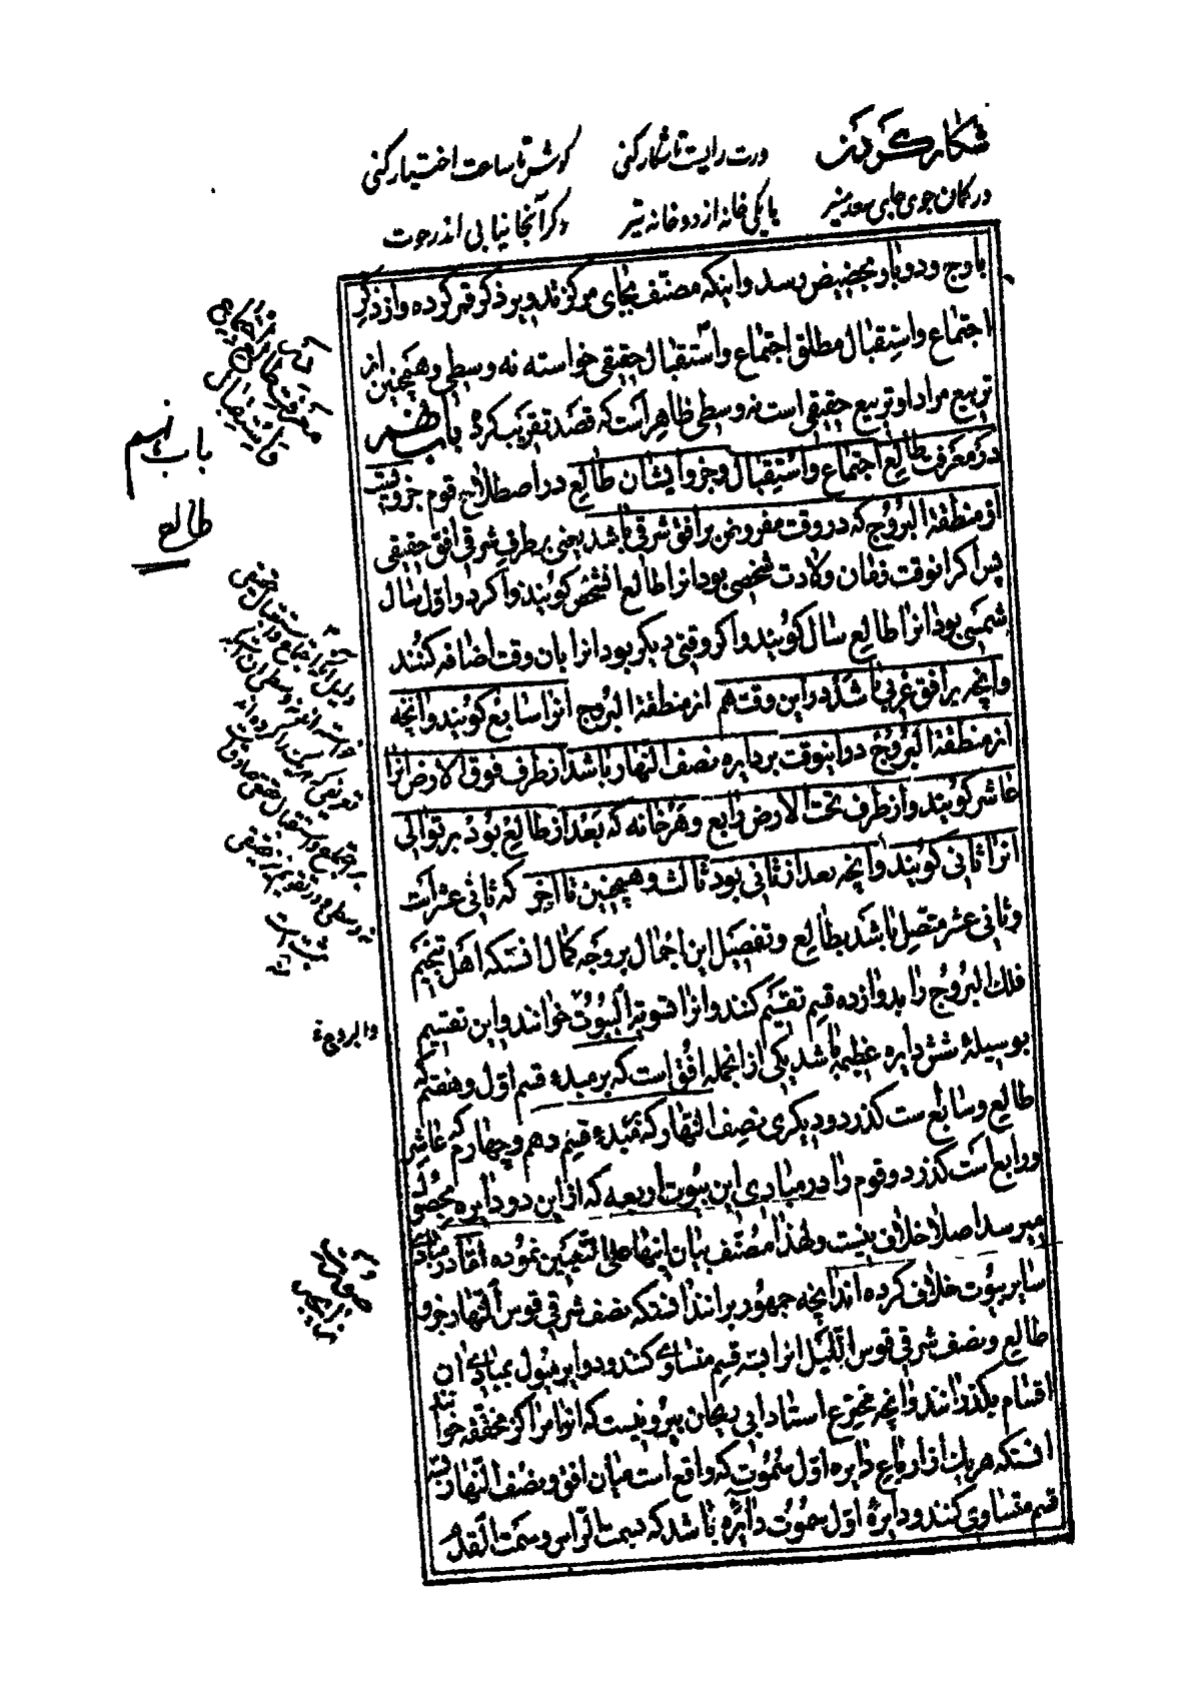 شکار کردن
ورت رایست تا شکار کنی
کوش تا ساعت اختیار کنی
در کمان جوی جای سعد منیر
یا یکی خانه از دو خانه تیر
وگر آنجا نیابی اندر حوت
باوج و دو بار بحضیض رسد و اینکه مصنف بجای مرکز تدویر ذکر قمر کرده و از ذکر
اجتماع و استقبال مطلق اجتماع و استقبال حقیقی خواسته نه وسطی و همچنین از
تربیع مراد او تربیع حقیقی است نه وسطی ظاهر است که قصد تقریب کرده باب نهم
در معرفت طالع اجتماع و استقبال و جزو ایشان طالع در اصطلاح قوم جزویست
از منطقة البروج که در وقت مفروض بر افق شرقی باشد یعنی بر طرف شرقی افق حقیقی
پس اگر انوقت زمان ولادت شخصی بود انرا طالع الشخص کویند و اگر در اول سال
شمسی بود انرا طالع سال کویند و اکر وقتی دیکر بود انرا بان وقت اضافه کنند
وانچه بر افق غربی باشد در این وقت هم از منطقة البروج انرا سابع کویند وانچه
از منطقة البروج در اینوقت بر دایره نصف النهار باشد از طرف فوق الارض انرا
عاشر کویند و از طرف تحت الارض رابع و هر خانه که بعد از طالع بود بر توالی
انرا ثانی کویند وانچه بعد از ثانی بود ثالث و همچنین تا اخر که ثانی عشر است
و ثانی عشر متصل باشد بطالع و تفصیل این اجمال بر وجه کمال انستکه اهل تنجیم
فلک البروج را بدوازده قسم تقسیم کنند و انرا تسویة البیوت خوانند و این تقسیم
بوسیلهٔ شش دایره عظیمه باشد یکی از انجمله افق است که بر مبدء قسم اول و هفتم که
طالع و سابع ست کذرد و دیکری نصف النهار که بمبدء قسم دهم و چهارم که عاشر
و رابع است کذرد و قوم را در مبادی این بیوت اربعه که از این دو دایره بحصول
میرسد اصلا خلاف نیست و لهذا مصنف بیان اینها علی التعیین نموده اما در مبادی
سایر بیوت خلاف کرده اند انچه جمهور برانند انستکه نصف شرقی قوس النهار جزو
طالع و نصف شرقی قوس اللیل انرا بسه قسم متساوی کنند و دوایر میول بمبادی ان
اقسام بکذرانند وانچه مخترع استاد ابی ریحان بیرونیست که انرا مراکز محققه خوانند
انستکه هر یک از ارباع دایره اول سموت که واقع است میان افق و نصف النهار بسه
قسم متساوی کنند و دایرهٔ اول سموت دایره باشد که بسمت الراس و سمت القدم
باب نهم
طالع